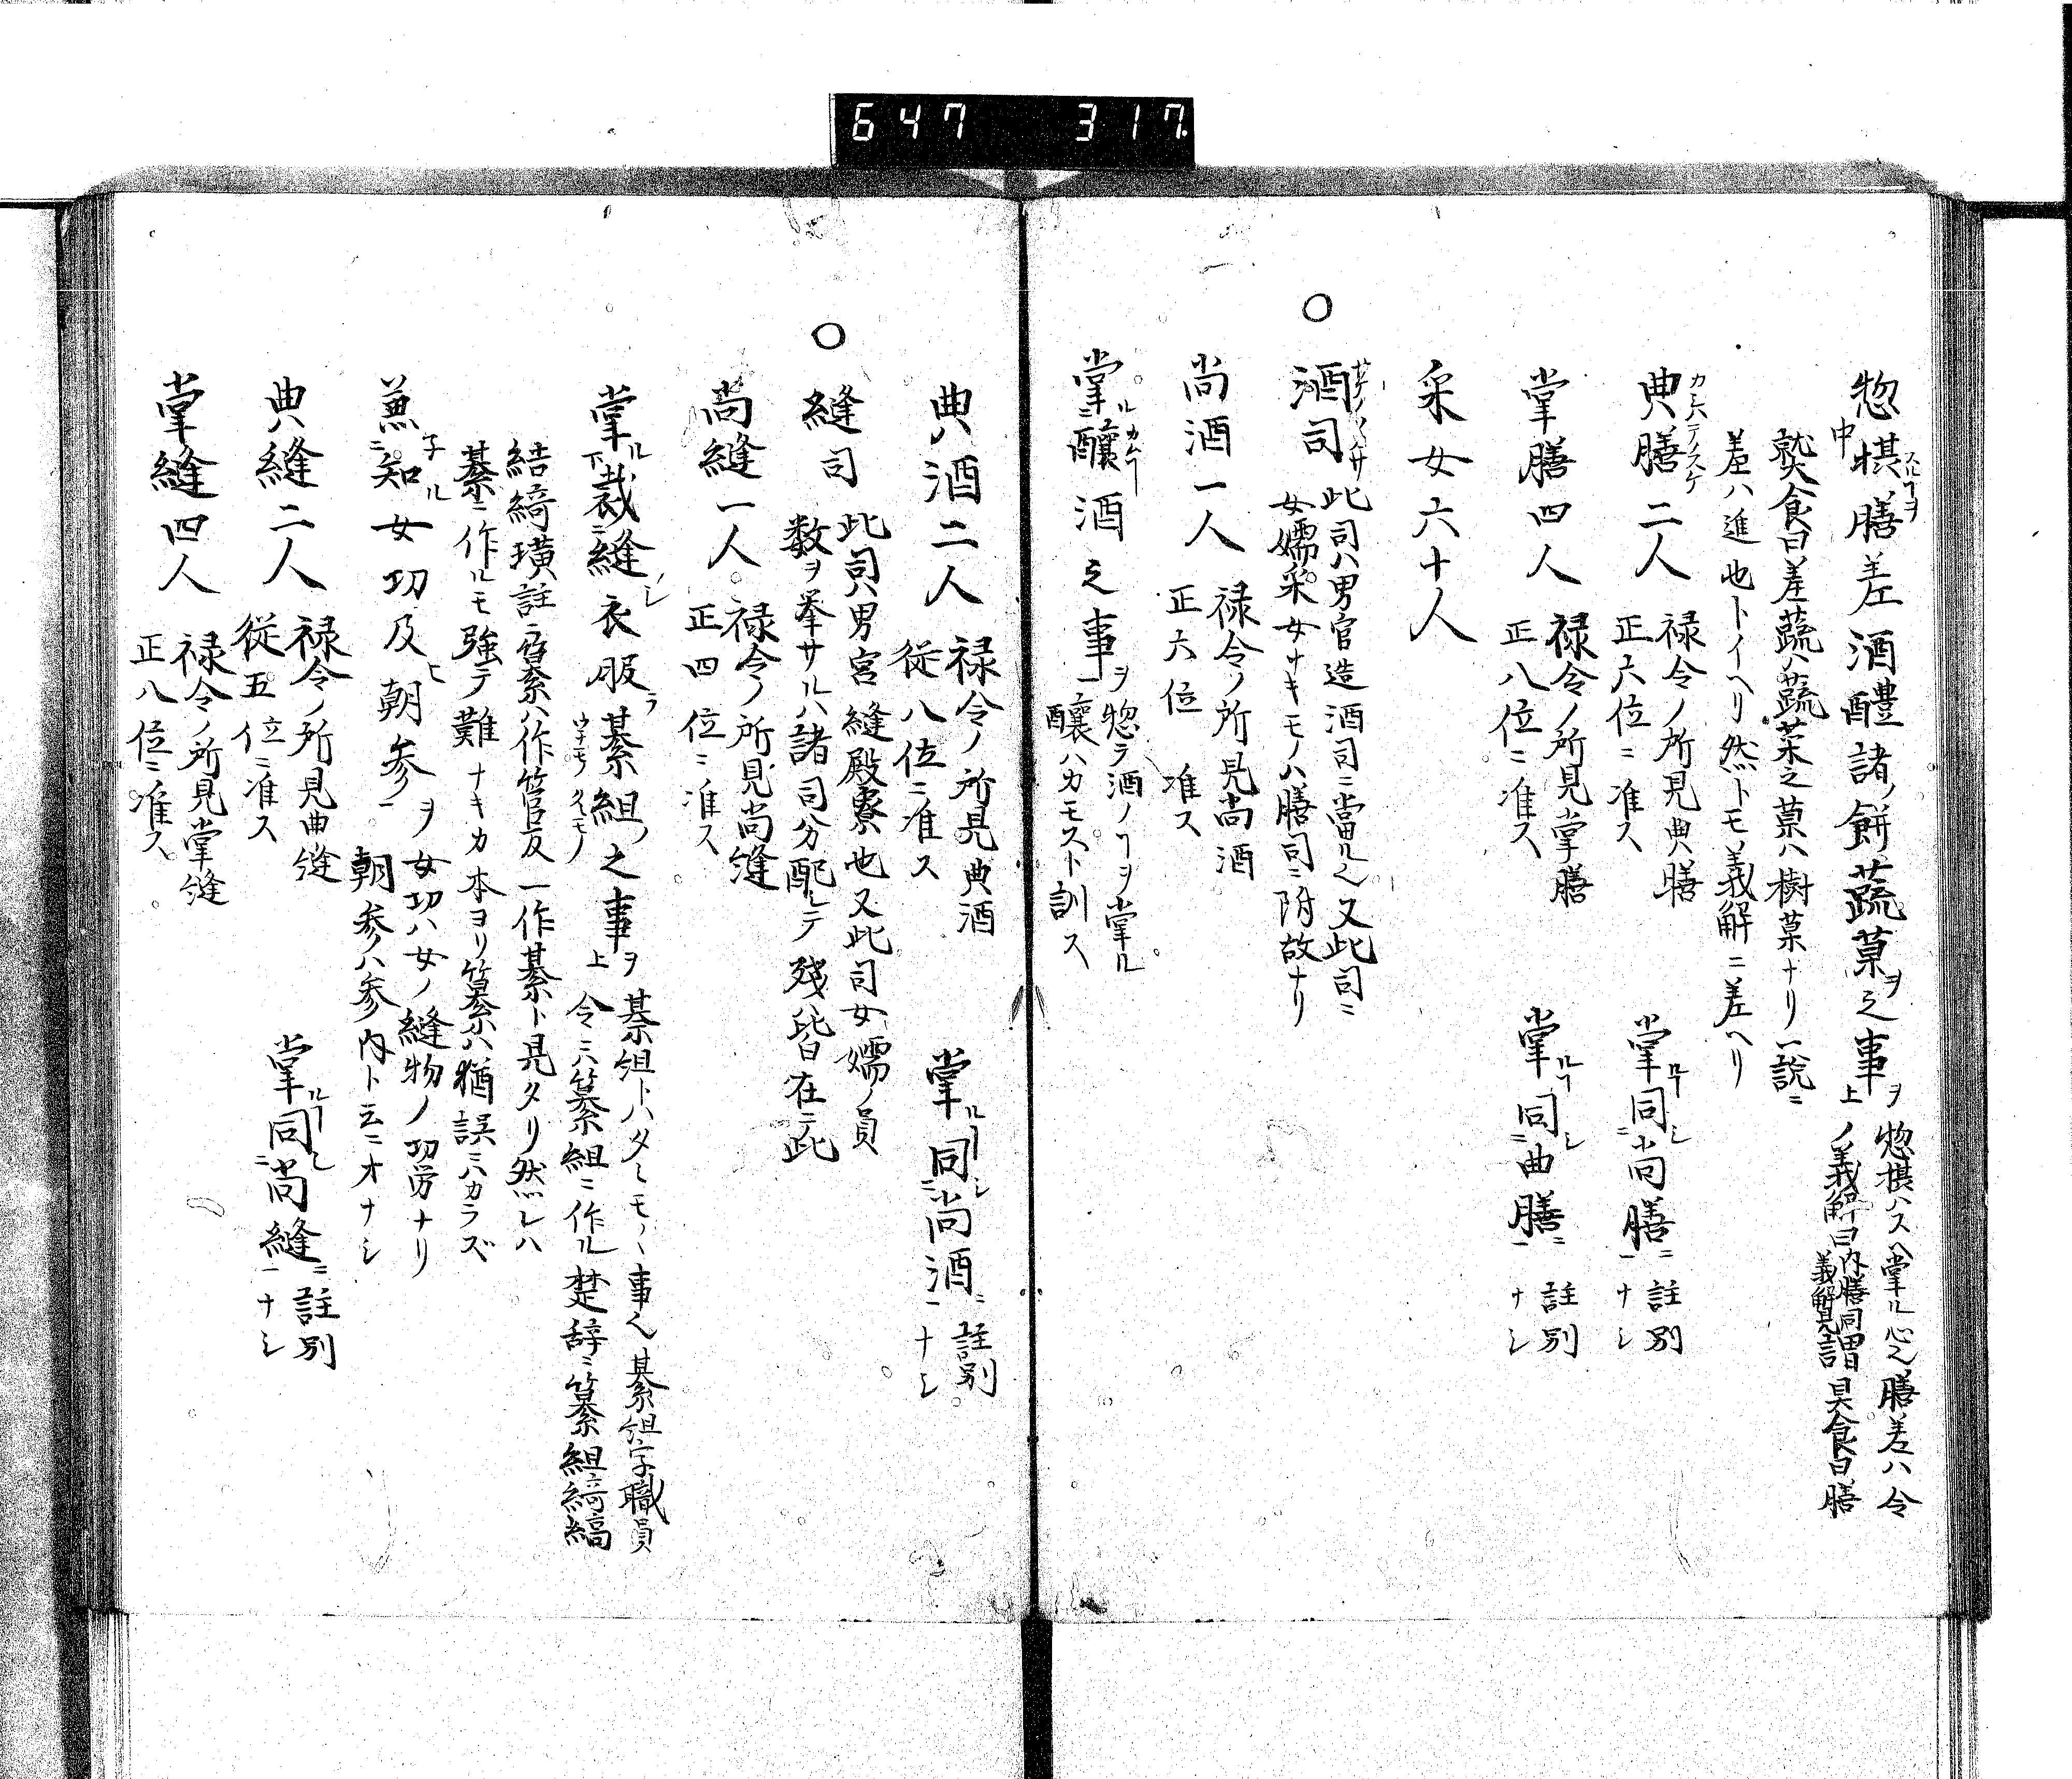 647 317
惣棋膳差酒醴諸餅蔬菓之事
惣棋ハスヘ掌ル心也膳差ハ令
ノ義解曰内膳同義解見謂具食曰膳
熟食曰差蔬ハ蔬菜之菓ハ樹菓ナリ一説ニ
差ハ進也トイヘリ然トモ義解ニ差ヘリ
典膳二人
禄令ノ所見典膳
正六位ニ准ス
掌同尚膳
註別
ナシ
掌膳四人
禄令ノ所見掌膳
正八位ニ准ス
掌同典膳
註別
ナシ
采女六十人
○酒司
此司ハ男官造酒司ニ當ル也又此司ニ
女孺采女ナキモノハ膳司ニ附故ナリ
尚酒一人
禄令ノ所見尚酒
正六位 准ス
掌釀酒之事
ヲ惣ラ酒ノヿヲ掌ル
釀ハカモスト訓ス
典酒二人
禄令ノ所見典酒
従八位ニ准ス
掌同尚酒
註別
ナシ
○縫司
此司ハ男宮縫殿寮也又此司女孺ノ員
数ヲ挙サルハ諸司分配シテ残ハ皆在テ此
尚縫一人
禄令ノ所見尚縫
正四位ニ准ス
掌裁縫衣服綦組之事
ヲ綦組トハタヽモノヽ事也綦組字職員
令ニハ纂組ニ作ル楚辞ニ纂組綺縞
結綺璜註ニ纂ハ作管反一作綦ト見タリ然レハ
綦ニ作ルモ強テ難ナキカ本ヨリ纂ハ猶誤ハカラズ
兼知女功及朝参
ヲ女功ハ女ノ縫物ノ功労ナリ
朝参ハ参内ト云ニオナシ
典縫二人
禄令ノ所見典縫
従五位ニ准ス
掌同尚縫
註別
ナシ
掌縫四人
禄令ノ所見掌縫
正八位ニ准ス